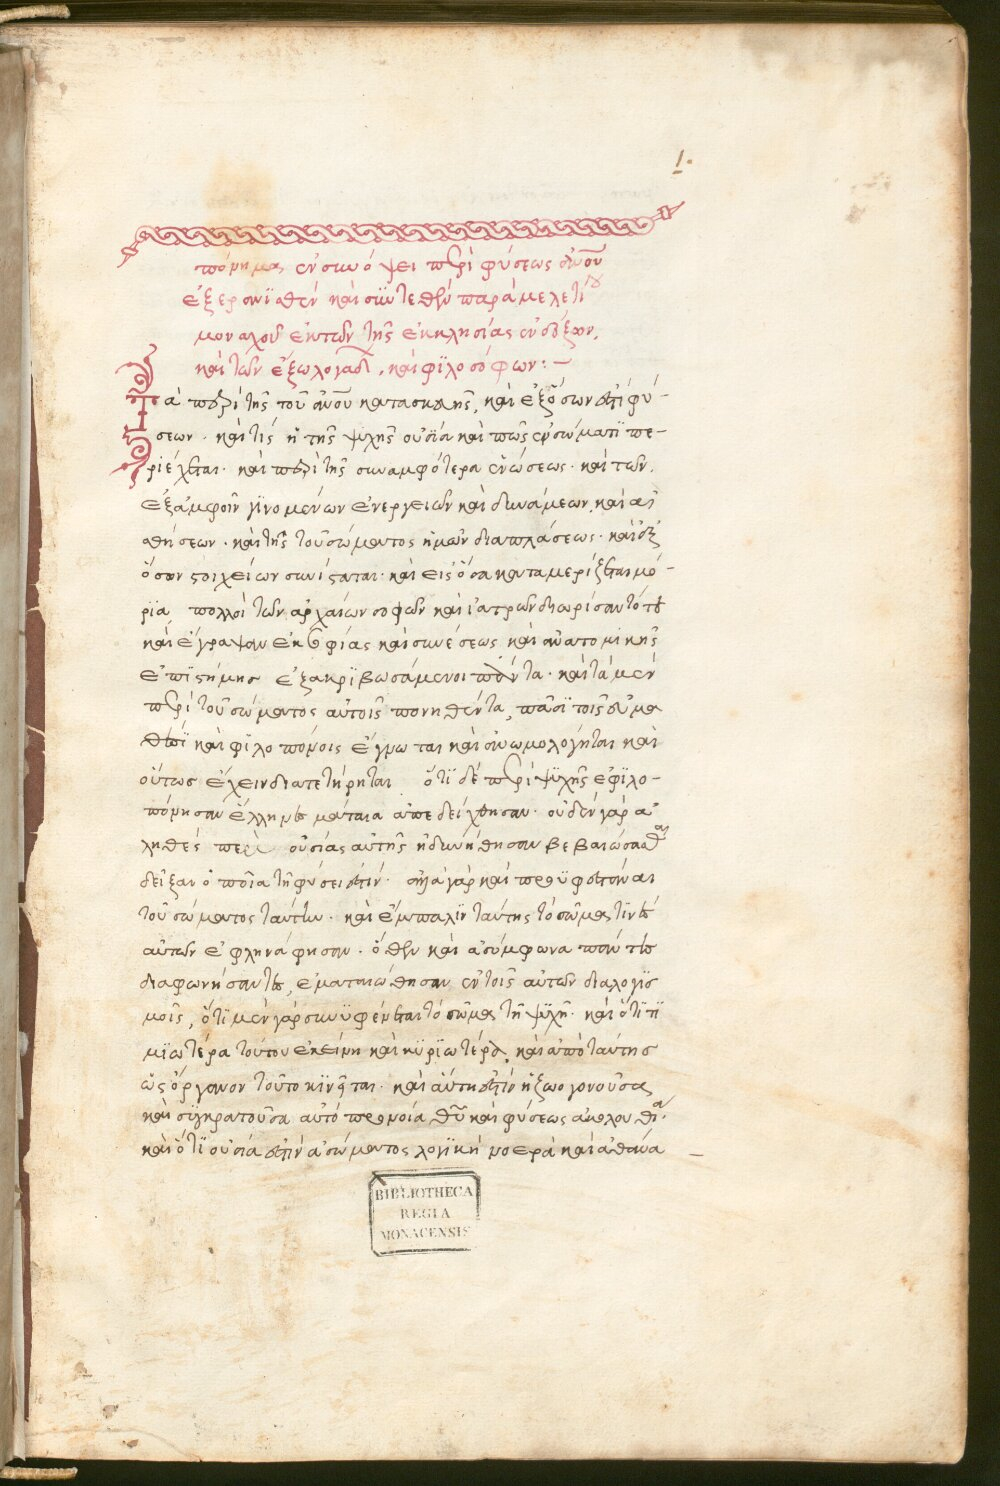 1.
πόνημα ἐν συνόψει περὶ φύσεως ἀνου
ἐξερανϊσθὲν καὶ συντεθὲν παρὰ μελετίου
μοναχοῦ ἐκ τῶν τῆς ἐκκλησίας ἐνδόξων,
καὶ τῶν ἔξω λογάδων, καὶ φϊλοσόφων:—
Τὰ περὶ τῆς τοῦ ἀνου κατασκευῆς, καὶ ἐξ ὅσων ἐστὶ φύ-
σεων. καὶ τίς ἡ τῆς ψυχῆς οὐσία καὶ πῶς ἐν σώματϊ πε-
ριέχεται. καὶ περὶ τῆς συναμφότερα ἑνώσεως. καὶ τῶν
ἐξ ἀμφοῖν γϊνομένων ἐνεργειῶν καὶ δυνάμεων, καὶ αἰ
σθήσεων. καὶ τῆς τοῦ σώματος ἡμῶν διαπλάσεως. καὶ ἐξ
ὅσων στοιχείων συνίσταται. καὶ εἰς ὅσα καταμερίζεται μό-
ρϊα, πολλοὶ τῶν ἀρχαίων σοφῶν καὶ ἰατρῶν διωρίσαντό τε
καὶ ἔγραψαν ἐκ σοφίας καὶ συνέσεως καὶ ἀνατομικῆς
ἐπϊστήμης ἐξακρϊβωσάμενοι πάντα. καὶ τὰ μὲν
περὶ τοῦ σώματος αὐτοῖς πονηθέντα, πᾶσϊ τοῖς εὐμα
θέσϊ καὶ φϊλοπόνοις ἔγνωσται καὶ ἀνωμολόγηται καὶ
οὕτως ἔχειν διατετήρηται ὅτϊ δὲ περὶ ψϋχῆς ἐφϊλο-
πόνησαν ἕλληνες μάταια ἀπεδείχθησαν. οὐδὲν γὰρ ἀ
ληθὲς περὶ οὐσίας αὐτῆς ἠδυνήθησαν βεβαιώσασθαι
δεῖξαι ὁποῖα τῆ φύσει ἐστίν. ἀλλὰ γὰρ καὶ προϋφεστάναι
τοῦ σώματος ταύτην. καὶ ἔμπαλϊν ταύτης τὸ σῶμα τϊνὲς
αὐτῶν ἐφληνάφησαν. ὅθεν καὶ ἀσύμφωνα πάντες
διαφωνήσαντες, ἐματαιώθησαν ἐν τοῖς αὐτῶν διαλογϊσ
μοῖς, ὅτϊ μὲν γὰρ συνϋφέρεται τὸ σῶμα τῆ ψϋχῆ. καὶ ὅτϊ τϊ
μϊωτέρα τούτου ἐκείνη καὶ κϋρϊωτέρα, καὶ ἀπὸ ταύτης
ὡς ὄργανον τοῦτο κϊνῆται. καὶ αὕτη ἐστὶν ἡ ζωογονοῦσα
καὶ συγκρατοῦσα αὐτὸ προνοία θυ καὶ φύσεως ἀκολουθία.
καὶ ὅτϊ οὐσία ἐστὶν ἀσώματος λογϊκὴ νοερὰ καὶ ἀθάνα—
BIBLIOTHECA
REGIA
MONACENSIS